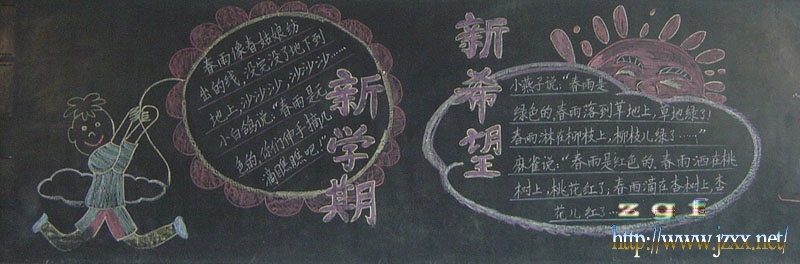 春雨像春姑娘纺
出的线，没完没了地下到
地上，沙沙沙，沙沙沙……
小白鸽说："春雨是无
色的，你们伸手摘几
滴瞧瞧吧！"
新学期
新希望
小燕子说："春雨是
绿色的，春雨落到草地上，草地绿了！
春雨淋在柳枝上，柳枝儿绿了……"
麻雀说："春雨是红色的，春雨洒在桃
树上，桃花红了，春雨滴在杏树上，杏
花儿红了…
zgf
http://www.jzxx.net/